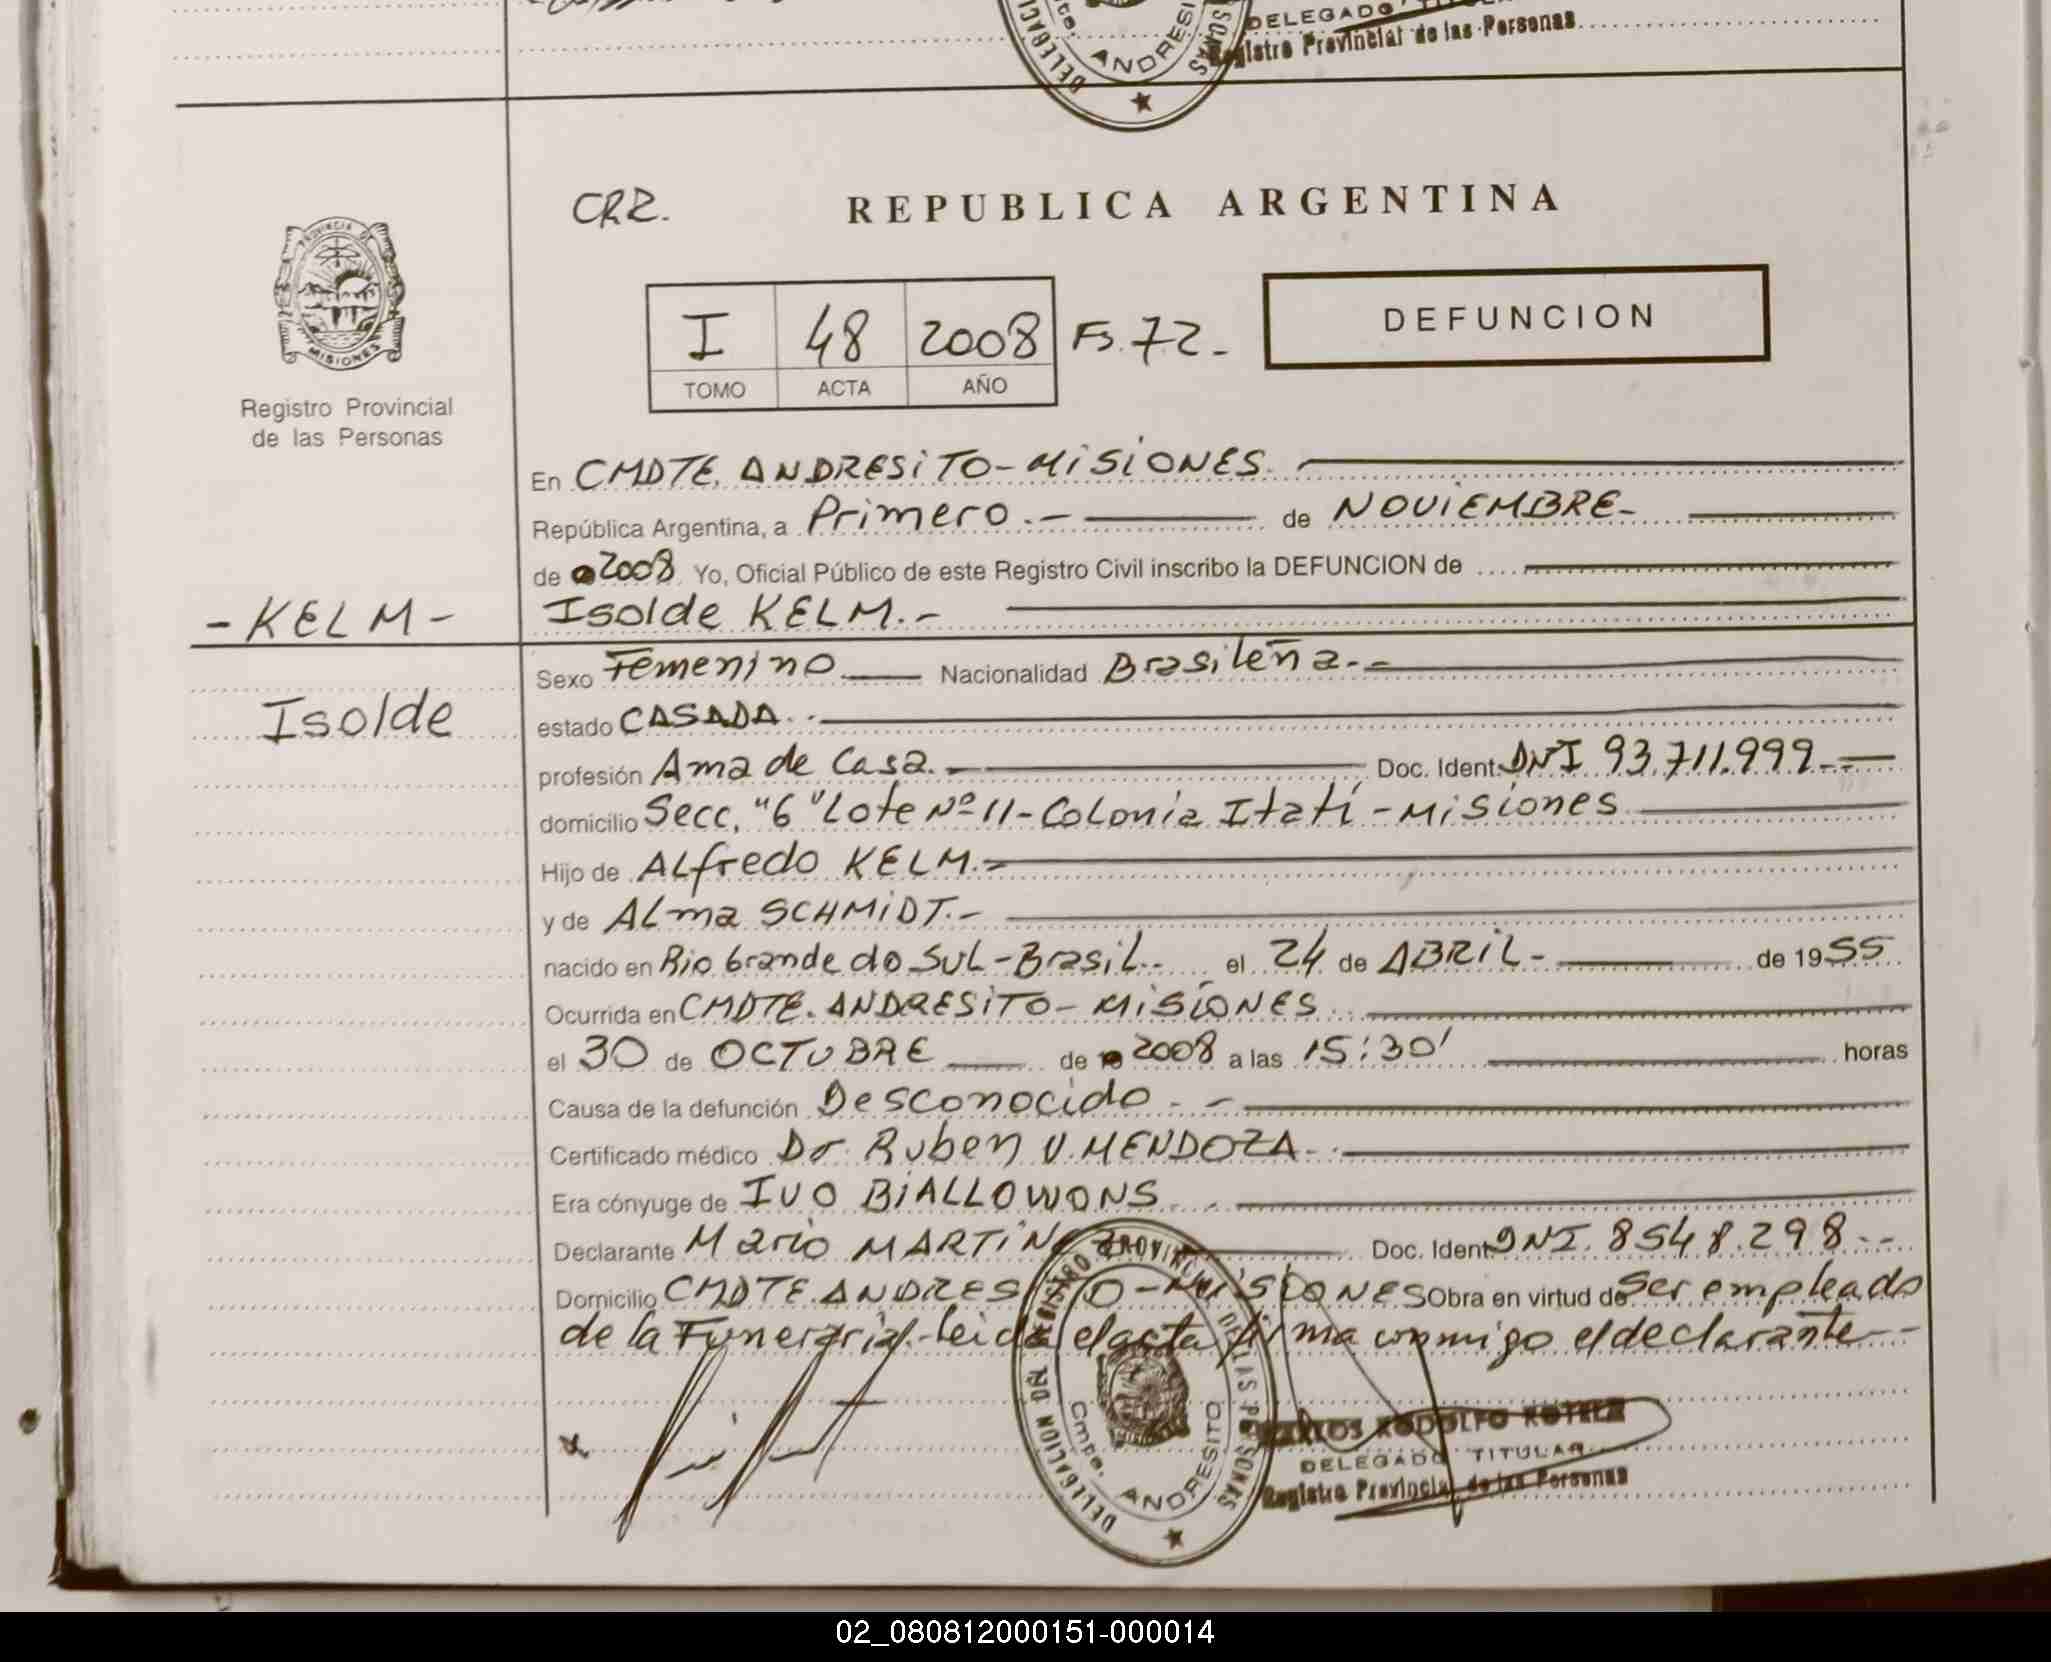 DELEGADO
Registro Provincial de las Personas
DELEGACI
ANDRESI
SONAS
CRZ.
REPUBLICA ARGENTINA
PROVINCIA DE
MISIONES
I 48 2008 Fs. 72.-
TOMO ACTA AÑO
DEFUNCION
Registro Provincial
de las Personas
En CMDTE. ANDRESITO-MISIONES.
República Argentina, a Primero.- de NOVIEMBRE-
de 2008 Yo, Oficial Público de este Registro Civil inscribo la DEFUNCION de
-KELM- Isolde KELM.-
Sexo Femenino Nacionalidad Brasileña.-
Isolde
estado CASADA.
profesión Ama de Casa.- Doc. Ident. DNI 93.711.999.-
domicilio Secc. "6" Lote Nº 11-Colonia Itatí-Misiones
Hijo de ALfredo KELM.-
y de ALma SCHMIDT.-
nacido en Rio Grande do SUL-Brasil. el 24 de ABRIL- de 1955
Ocurrida en CMDTE. ANDRESITO-MISIONES
el 30 de OCTUBRE de 2008 a las 15:30' horas
Causa de la defunción Desconocido.-
Certificado médico Dr. Ruben V. MENDOZA.
Era cónyuge de IVO BIALLOWONS
Declarante Mario MARTINEZ Doc. Ident. DNI. 8548.298.-
Domicilio CMDTE. ANDRESITO-MISIONES Obra en virtud de Ser empleado
de la Funeraria.-leida el acta firma conmigo el declarante.-
DELEGACION DEL REGISTRO PROVINCIAL DE LAS PERSONAS
Cmte. ANDRESITO
CARLOS RODOLFO
DELEGADO TITULAR
Registro Provincial de las Personas
02_080812000151-000014